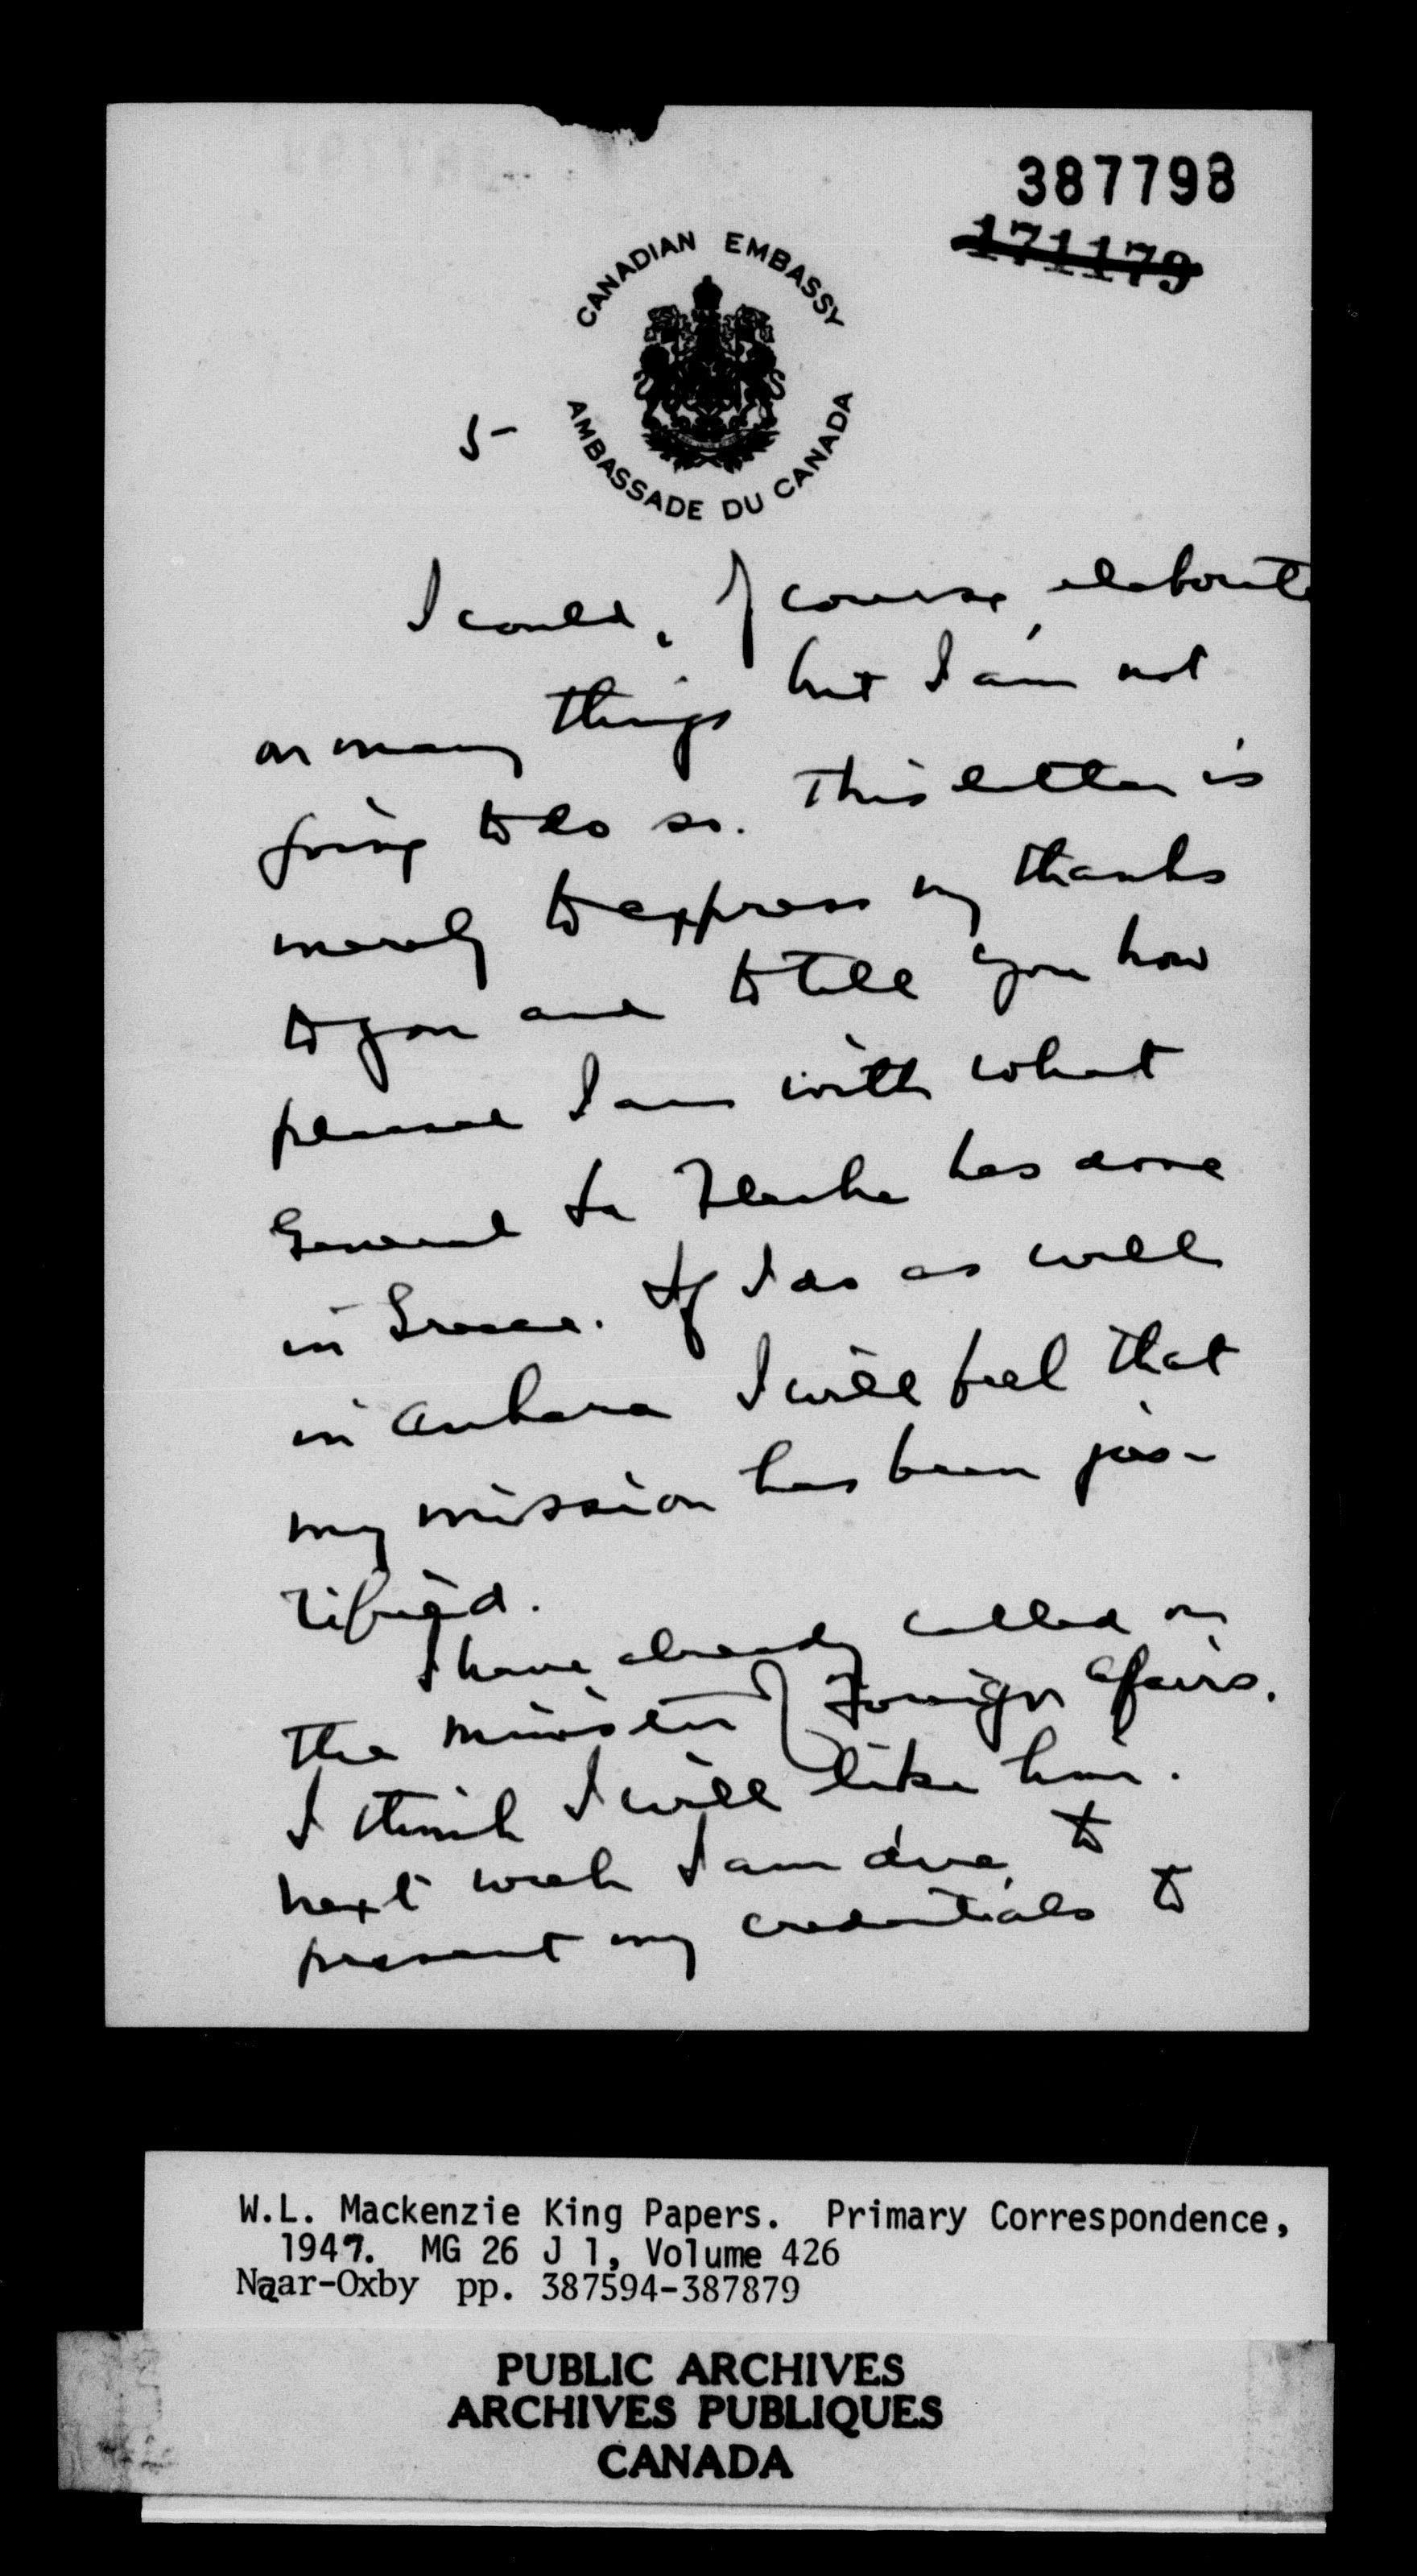 387798
171179
CANADIAN EMBASSY
AMBASSADE DU CANADA
5-
I could, of course, elaborate
on many things but I am not
going to do so. This letter is
merely to express my thanks
to you and to tell you how
pleased I am with what
General La Fleche has done
in Greece. If I do as well
in Ankara I will feel that
my mission has been jus-
tified.
I have already called on
the Minister of Foreign Affairs.
I think I will like him.
next week I am due to
present my credentials to
W.L. Mackenzie King Papers. Primary Correspondence,
1947. MG 26 J 1, Volume 426
Naar-Oxby pp. 387594-387879
PUBLIC ARCHIVES
ARCHIVES PUBLIQUES
CANADA